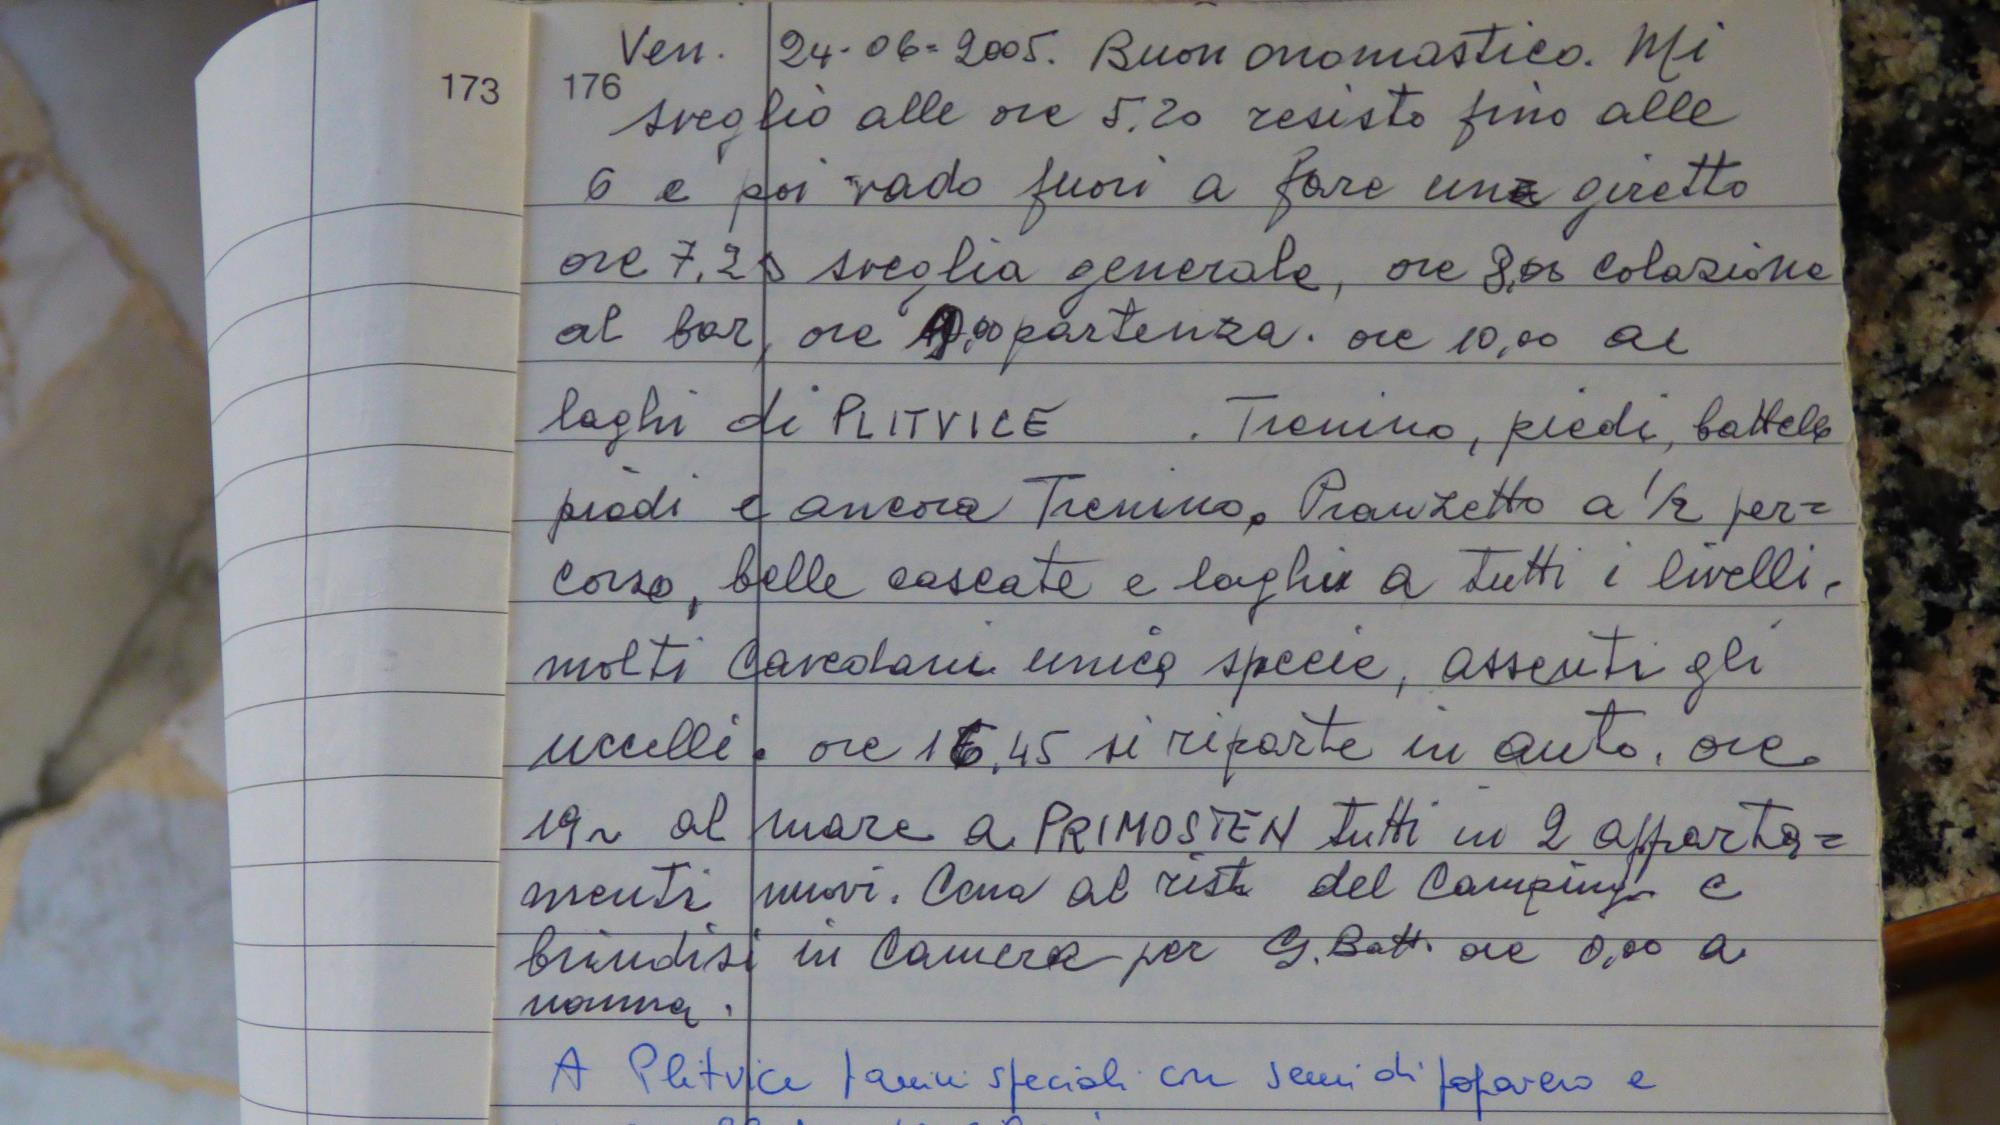 173
176
Ven. 24-06=2005. Buon onomastico. Mi
sveglio alle ore 5,20 resisto fino alle
6 e poi vado fuori a fare un giretto
ore 7,20 sveglia generale, ore 8,00 colazione
al bar, ore partenza. ore 10,00 ai
laghi di PLITVICE . Trenino, piedi, battello
piedi e ancora Trenino. Pranzetto a 1/2 per=
corso, belle cascate e laghi a tutti i livelli.
molti Cavedani unica specie, assenti gli
uccelli. ore 16,45 si riparte in auto. ore
19~ al mare a PRIMOSTEN tutti in 2 apparta=
menti nuovi. Cena al rist. del Camping e
brindisi in Camera per G. Batt. ore 0,00 a
nanna.
A Plitvice panini speciali con semi di papavero e